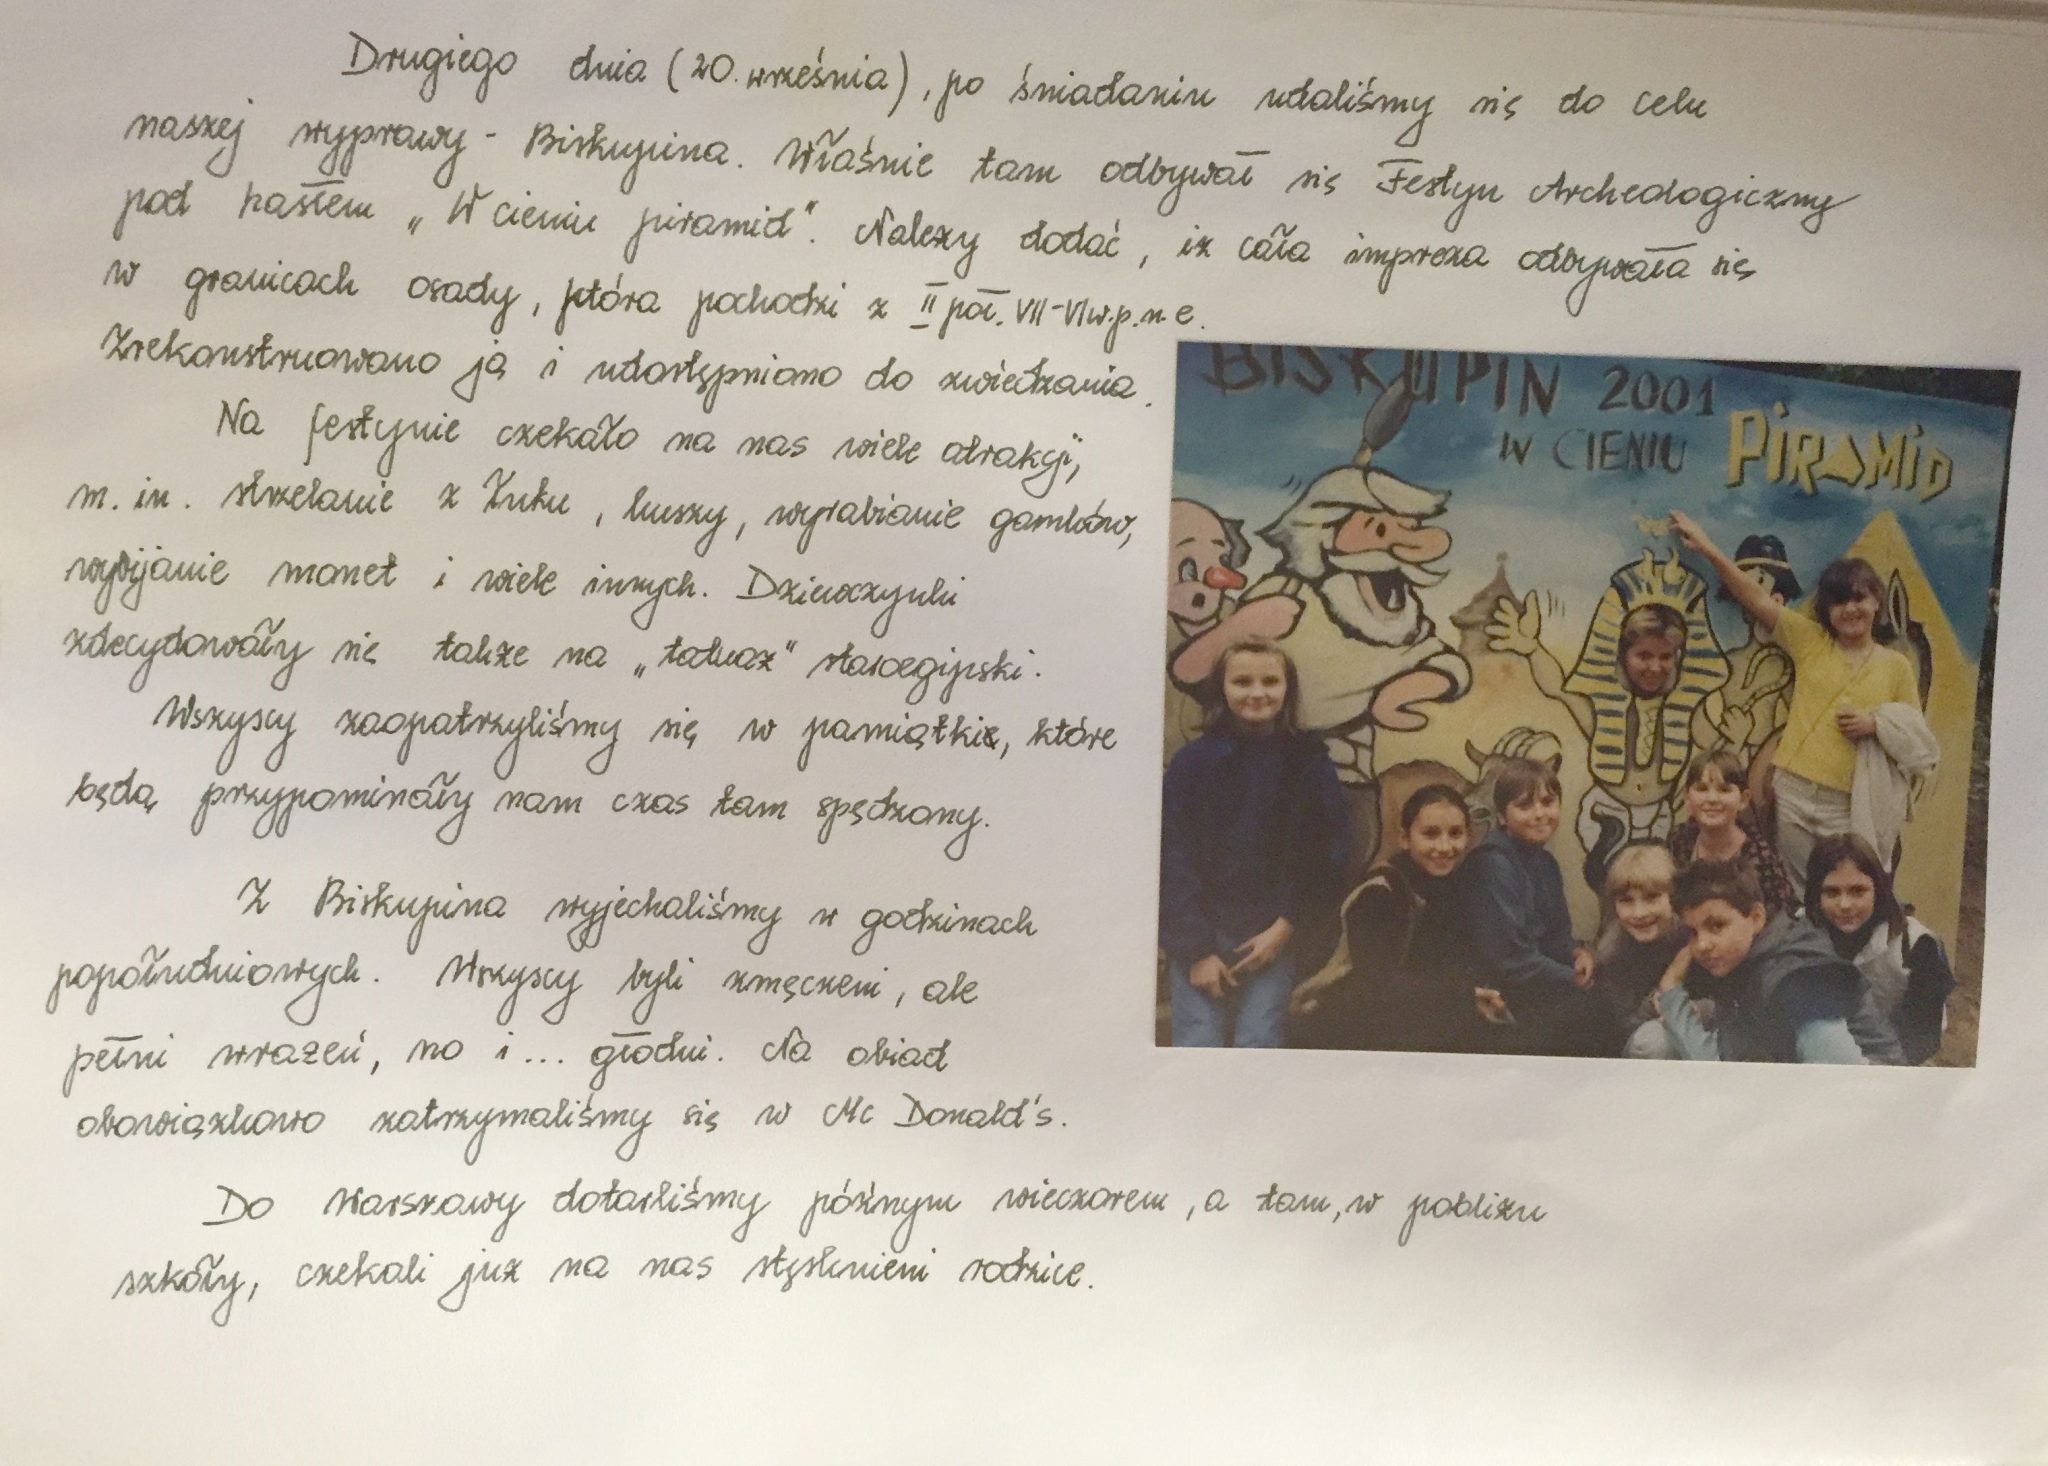 Drugiego dnia (20. września), po śniadaniu udaliśmy się do celu
naszej wyprawy - Biskupina. Właśnie tam odbywał się Festyn Archeologiczny
pod hasłem „W cieniu piramid". Należy dodać, iż cała impreza odbywała się
w granicach osady, która pochodzi z II poł. VII-VI w.p.n.e.
Zrekonstruowano ją i udostępniono do zwiedzania.
Na festynie czekało na nas wiele atrakcji,
m.in. strzelanie z łuku, kuszy, wyrabianie garnków,
wybijanie monet i wiele innych. Dziewczynki
zdecydowały się także na „tatuaż" staroegipski.
Wszyscy zaopatrzyliśmy się w pamiątki, które
będą przypominały nam czas tam spędzony.
Z Biskupina wyjechaliśmy w godzinach
popołudniowych. Wszyscy byli zmęczeni, ale
pełni wrażeń, no i... głodni. Na obiad
obowiązkowo zatrzymaliśmy się w Mc Donald's.
Do Warszawy dotarliśmy późnym wieczorem, a tam, w pobliżu
szkoły, czekali już na nas stęsknieni rodzice.
BISKUPIN 2001
W CIENIU PIRAMID